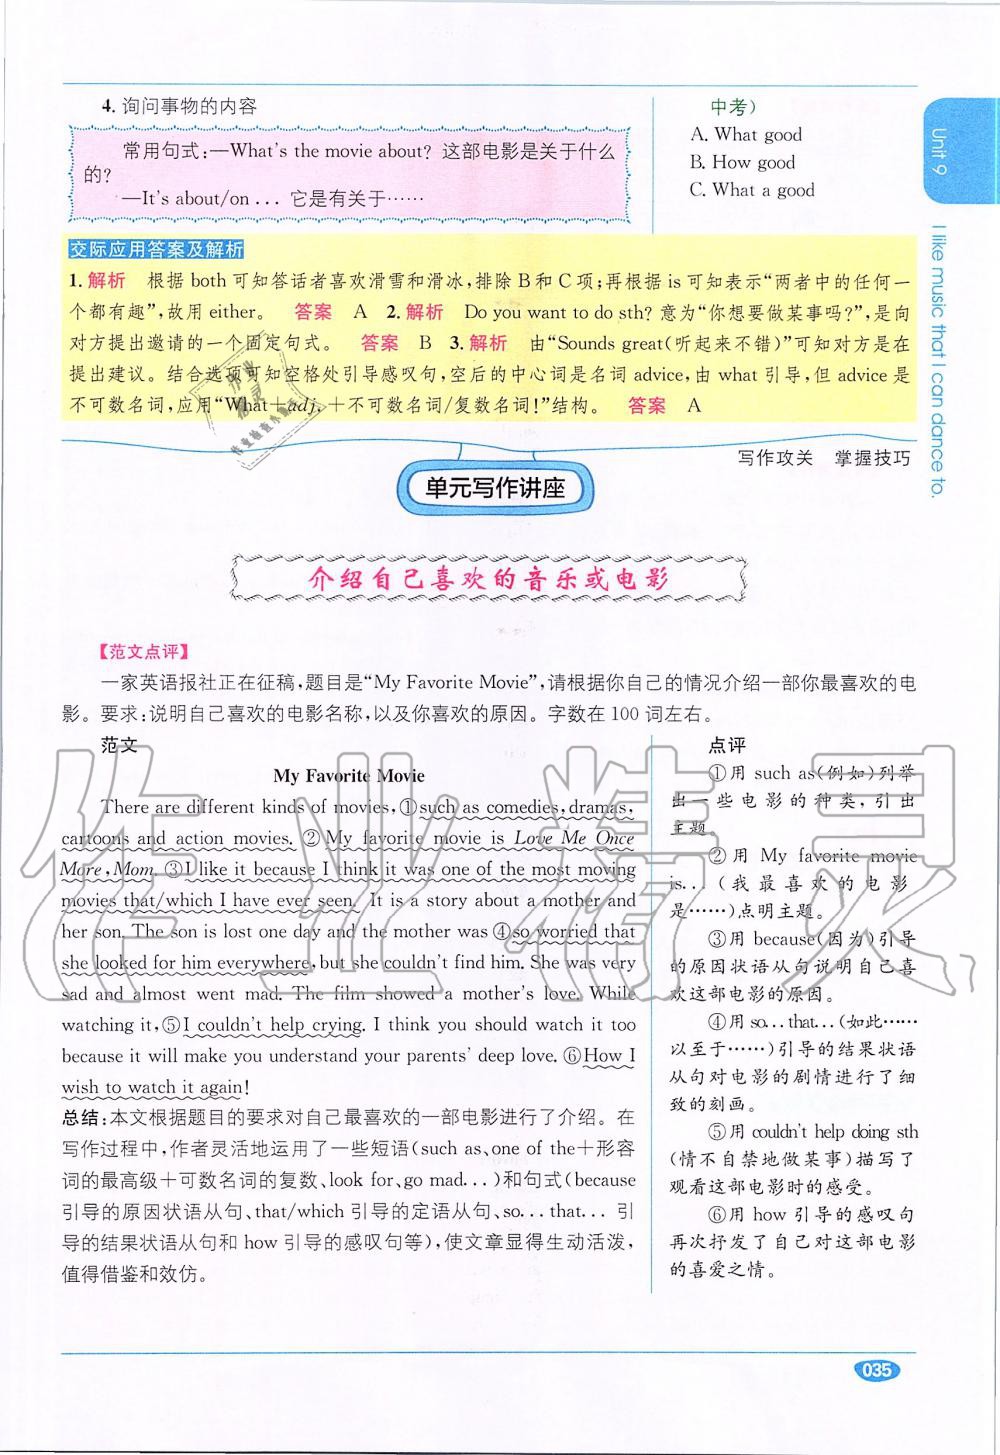 4. 询问事物的内容
常用句式:—What's the movie about? 这部电影是关于什么
的?
—It's about/on ... 它是有关于……
中考)
A. What good
B. How good
C. What a good
Unit 9
I like music that I can dance to.
交际应用答案及解析
1. 解析 根据 both 可知答话者喜欢滑雪和滑冰,排除 B 和 C 项;再根据 is 可知表示“两者中的任何一
个都有趣”,故用 either。 答案 A 2. 解析 Do you want to do sth? 意为“你想要做某事吗?”,是向
对方提出邀请的一个固定句式。 答案 B 3. 解析 由“Sounds great(听起来不错)”可知对方是在
提出建议。结合选项可知空格处引导感叹句,空后的中心词是名词 advice,由 what 引导,但 advice 是
不可数名词,应用“What+adj.+不可数名词/复数名词!”结构。 答案 A
写作攻关 掌握技巧
单元写作讲座
介绍自己喜欢的音乐或电影
【范文点评】
一家英语报社正在征稿,题目是“My Favorite Movie”,请根据你自己的情况介绍一部你最喜欢的电
影。要求:说明自己喜欢的电影名称,以及你喜欢的原因。字数在 100 词左右。
范文
My Favorite Movie
There are different kinds of movies,①such as comedies,dramas,
cartoons and action movies. ②My favorite movie is Love Me Once
More,Mom. ③I like it because I think it was one of the most moving
movies that/which I have ever seen. It is a story about a mother and
her son. The son is lost one day and the mother was ④so worried that
she looked for him everywhere,but she couldn't find him. She was very
sad and almost went mad. The film showed a mother's love. While
watching it,⑤I couldn't help crying. I think you should watch it too
because it will make you understand your parents' deep love. ⑥How I
wish to watch it again!
总结:本文根据题目的要求对自己最喜欢的一部电影进行了介绍。在
写作过程中,作者灵活地运用了一些短语(such as,one of the+形容
词的最高级+可数名词的复数、look for,go mad...)和句式(because
引导的原因状语从句、that/which 引导的定语从句、so...that... 引
导的结果状语从句和 how 引导的感叹句等),使文章显得生动活泼,
值得借鉴和效仿。
点评
①用 such as(例如)列举
出一些电影的种类,引出
主题。
②用 My favorite movie
is...(我最喜欢的电影
是……)点明主题。
③用 because(因为)引导
的原因状语从句说明自己喜
欢这部电影的原因。
④用 so...that...(如此……
以至于……)引导的结果状语
从句对电影的剧情进行了细
致的刻画。
⑤用 couldn't help doing sth
(情不自禁地做某事)描写了
观看这部电影时的感受。
⑥用 how 引导的感叹句
再次抒发了自己对这部电影
的喜爱之情。
作业精灵
035